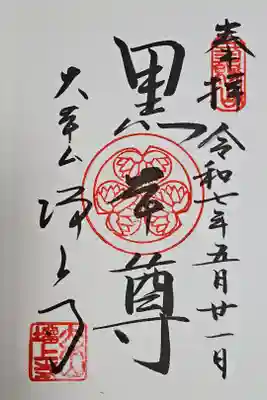 奉拝
令和七年五月廿一日
黒本尊
大本山 増上寺